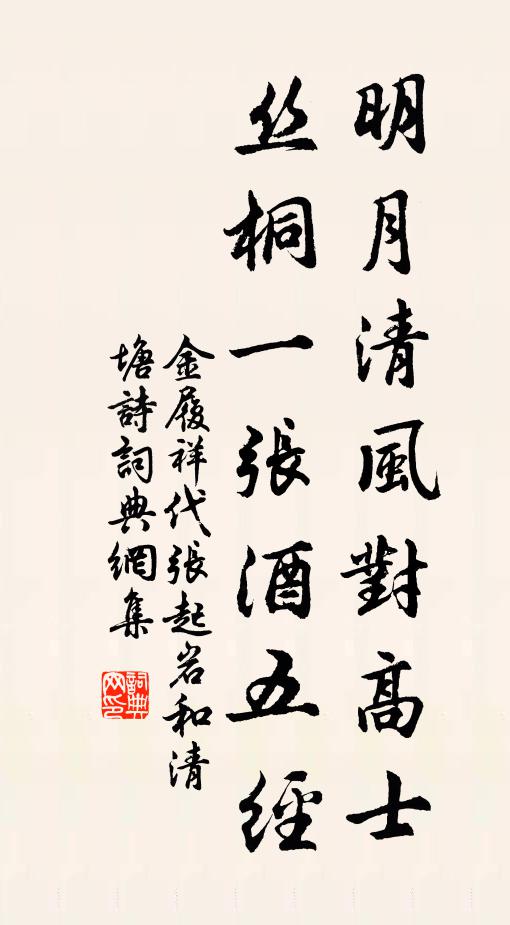 明月清風對高士
丝桐一張酒五經
金履祥代張起岩和清
塘詩詞典網集
詞典网印